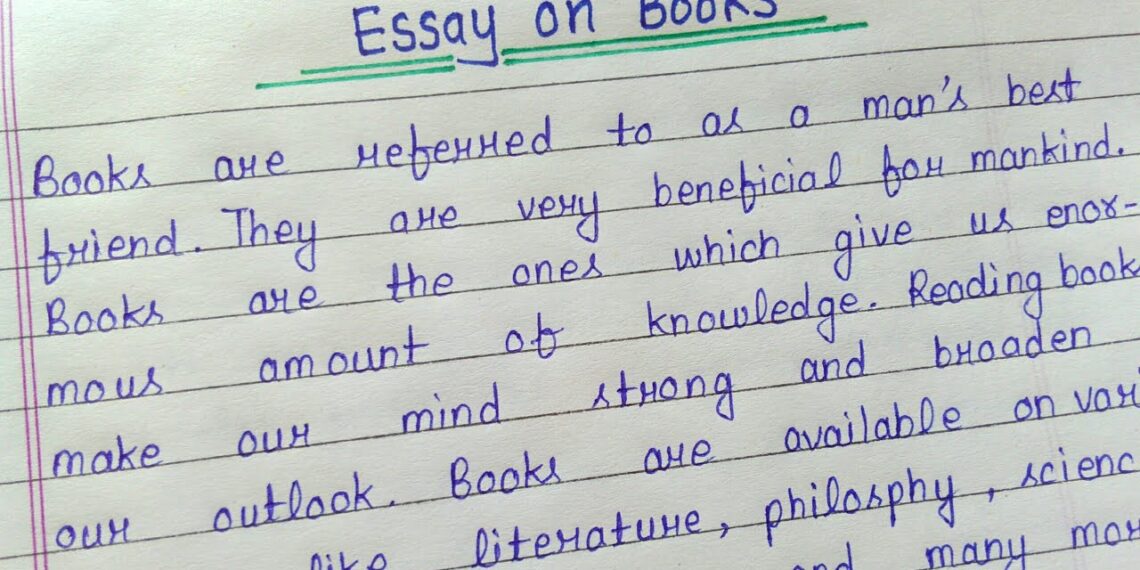 Essay on Books
Books are referred to as a man's best
friend. They are very beneficial for mankind.
Books are the ones which give us enor-
mous amount of knowledge. Reading book
make our mind strong and broaden
our outlook. Books are available on vari
like literature, philosphy, scienc
and many mor